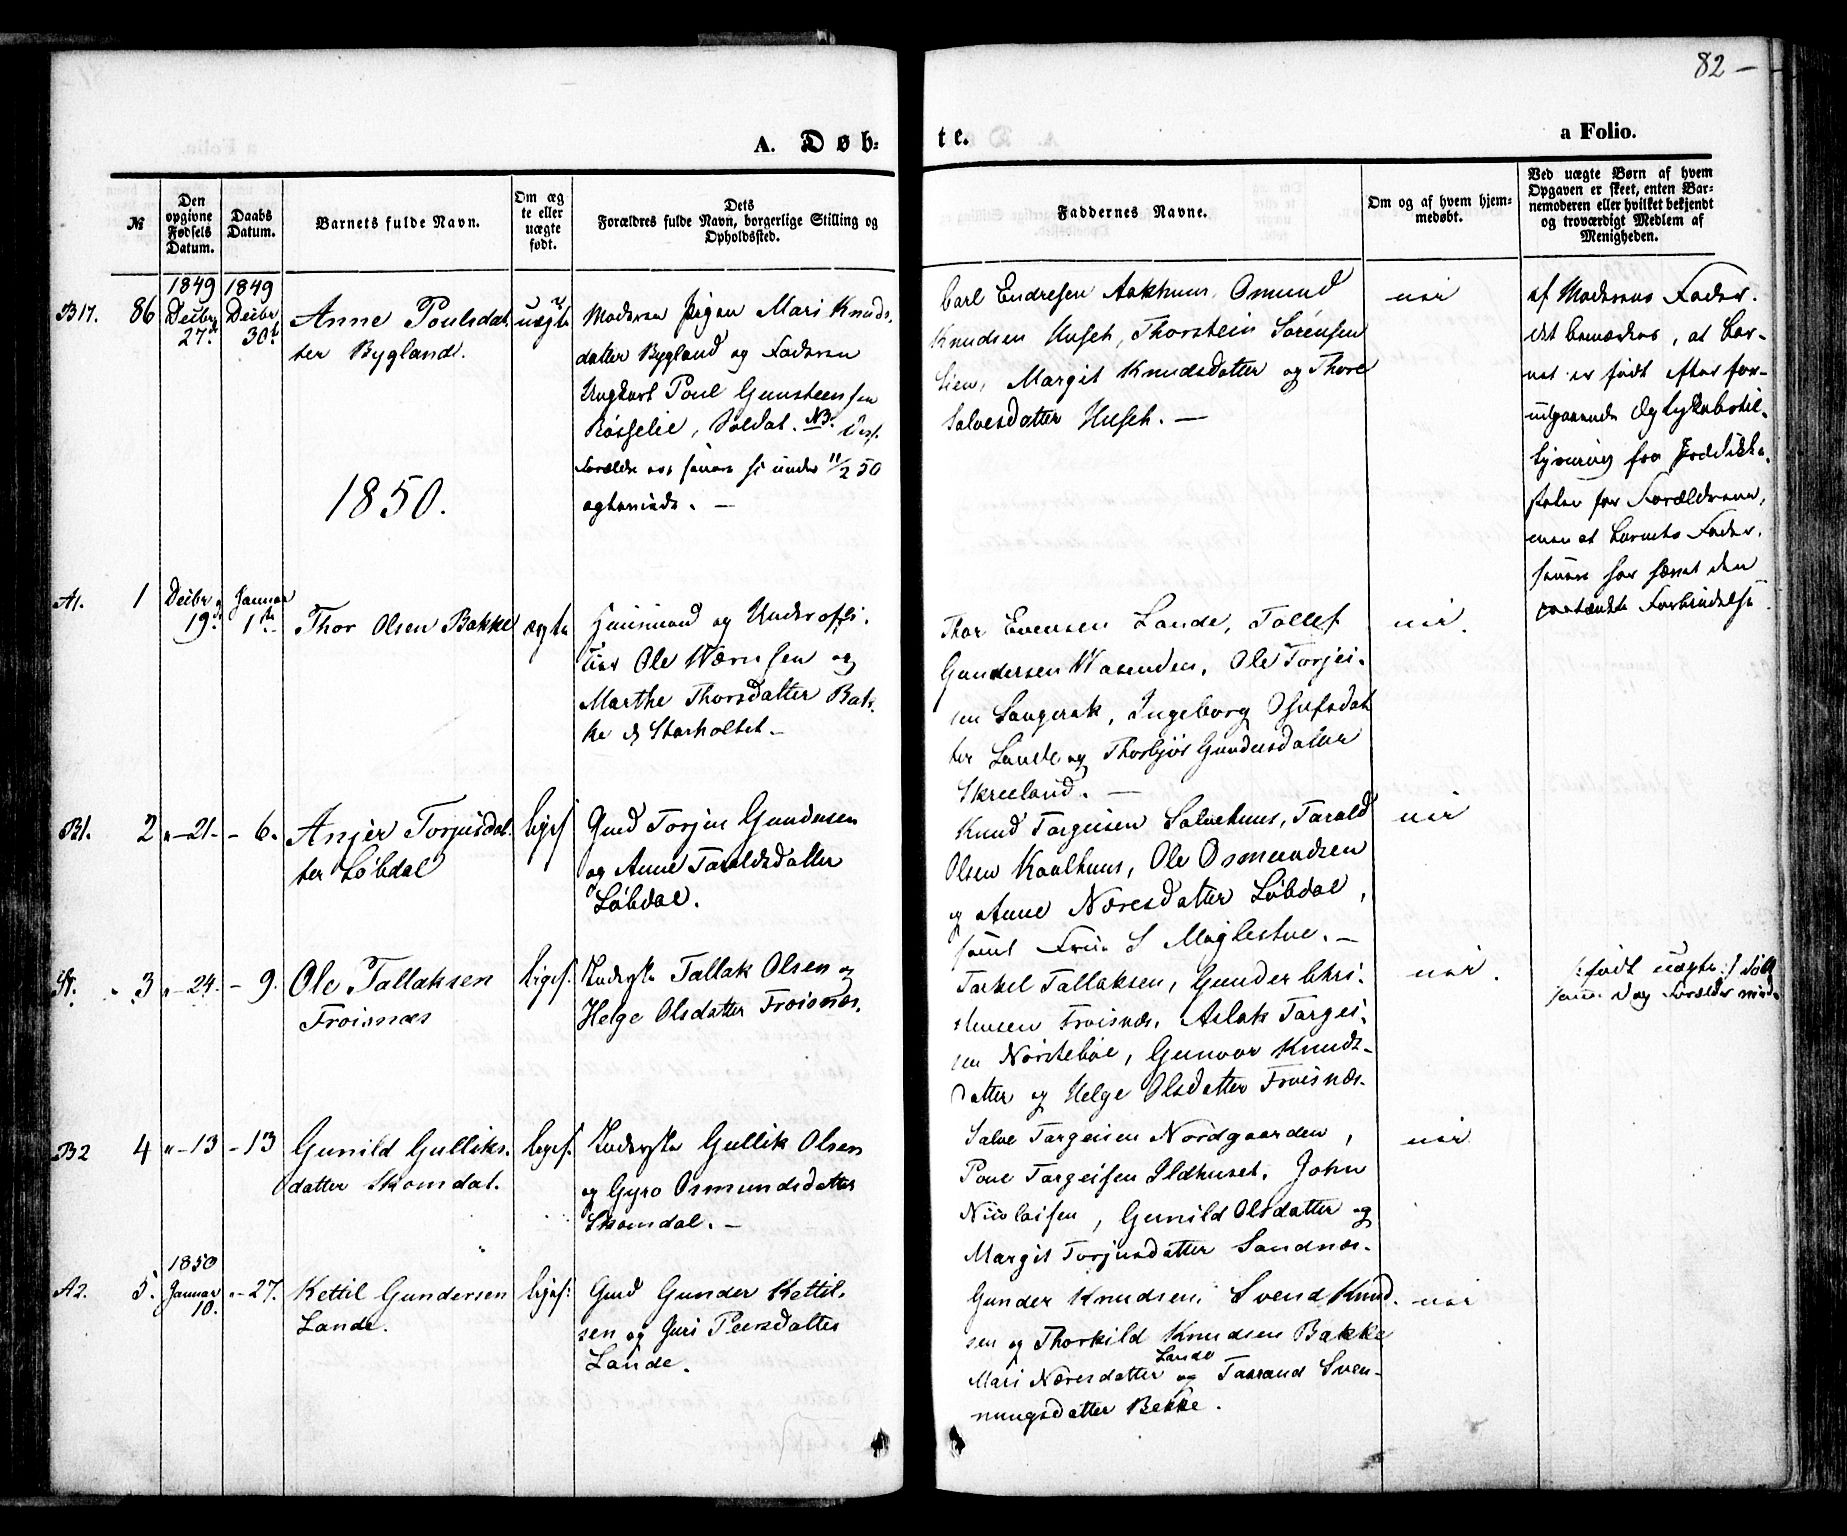 82 —
A. Døb-
te.
a Folio.
№
Den
opgivne
Fødsels
Datum.
Daabs
Datum.
Barnets fulde Navn.
Om æg
te eller
uægte
født.
Dets
Forældres fulde Navn, borgerlige Stilling og
Opholdssted.
Faddernes Navne.
Om og af hvem hjem-
medøbt.
Ved uægte Børn af hvem
Opgaven er skeet, enten Bar-
nemoderen eller hvilket bekjendt
og troværdigt Medlem af
Menigheden.
B17. 86
1849
Decbr
27de
1849
Decbr
30te
Anne Poulsdat
ter Bygland.
uægte
Moderen Pigen Mari Knuds
datter Bygland og Faderen
Ungkarl Poul Gunsteensen
Røsselie, Soldat. NB.
Forældre 11/2 50
ægteviede. —
Carl Endresen Aakhuus, Osmund
Knudsen Huseh, Thorstein Sørensen
Lien, Margit Knudsdatter og Thore
Salvesdatter Huseh. —
nei
af Moderens Fader.
det bemærkes, at Bar-
net er født efter for-
udgaaende Ægteskabstil-
lysning fra Prædikke-
stolen for Forældrene,
men at Barnets Fader
Forbindelse
1850.
A1. 1
Decbr
19de
Januar
1ste
Thor Olsen Bakke
ægte
Huusmand og Underoffi-
cier Ole Wærnsen og
Marthe Thorsdatter Bak-
ke & Storholtet. —
Thor Evensen Lande, Tollef
Gundersen Wasenden, Ole Torjei-
sen Langerak, Ingeborg Osufsdat
ter Lande og Thorbjør Gundersdatter
Skreeland. —
nei.
B1. 2
" — 21.
— 6.
Anjer Torjusdat
ter Løbdal
ligel.
Gmd Torjus Gundersen
og Anne Taraldsdatter
Løbdal.
Knud Targeisen Salvehuus, Tarald
Olsen Kaalhuus, Ole Osmundsen
og Anne Næresdatter Løbdal,
samt Frue S Moglestue. —
nei
3
" — 24.
— 9.
Ole Tallaksen
Froisnæs
ligel.
Inderste Tallak Olsen og
Helge Olsdatter Froisnæs.
Torkel Tallaksen, Gunder Chri-
stensen Froisnæs, Aslak Targei-
sen Nørstebøe, Gunvor Knuds-
datter og Helge Olsdatter Froisnæs.
nei.
født uægte
B2 4
" — 13
— 13
Gunild Gulliks-
datter Skomdal.
ligel.
Inderste Gullik Olsen
og Gyro Osmundsdatter
Skomdal. —
Salve Targeisen Nordgaarden,
Poul Targeisen Ildhuset, John
Nicolaisen, Gunild Olsdatter og
Margit Torjusdatter Sandnæs.
nei
A2. 5.
1850
Januar
10.
— 27.
Kettil Gundersen
Lande.
ligel.
Gmd Gunder Kettil-
sen og Guri Peersdatter
Lande.
Gunder Knudsen, Svend Knud-
sen og Thorkild Knudsen Bakke
Mari Næresdatter Lande og Taarand Sven-
nungsdatter Bekke.
nei